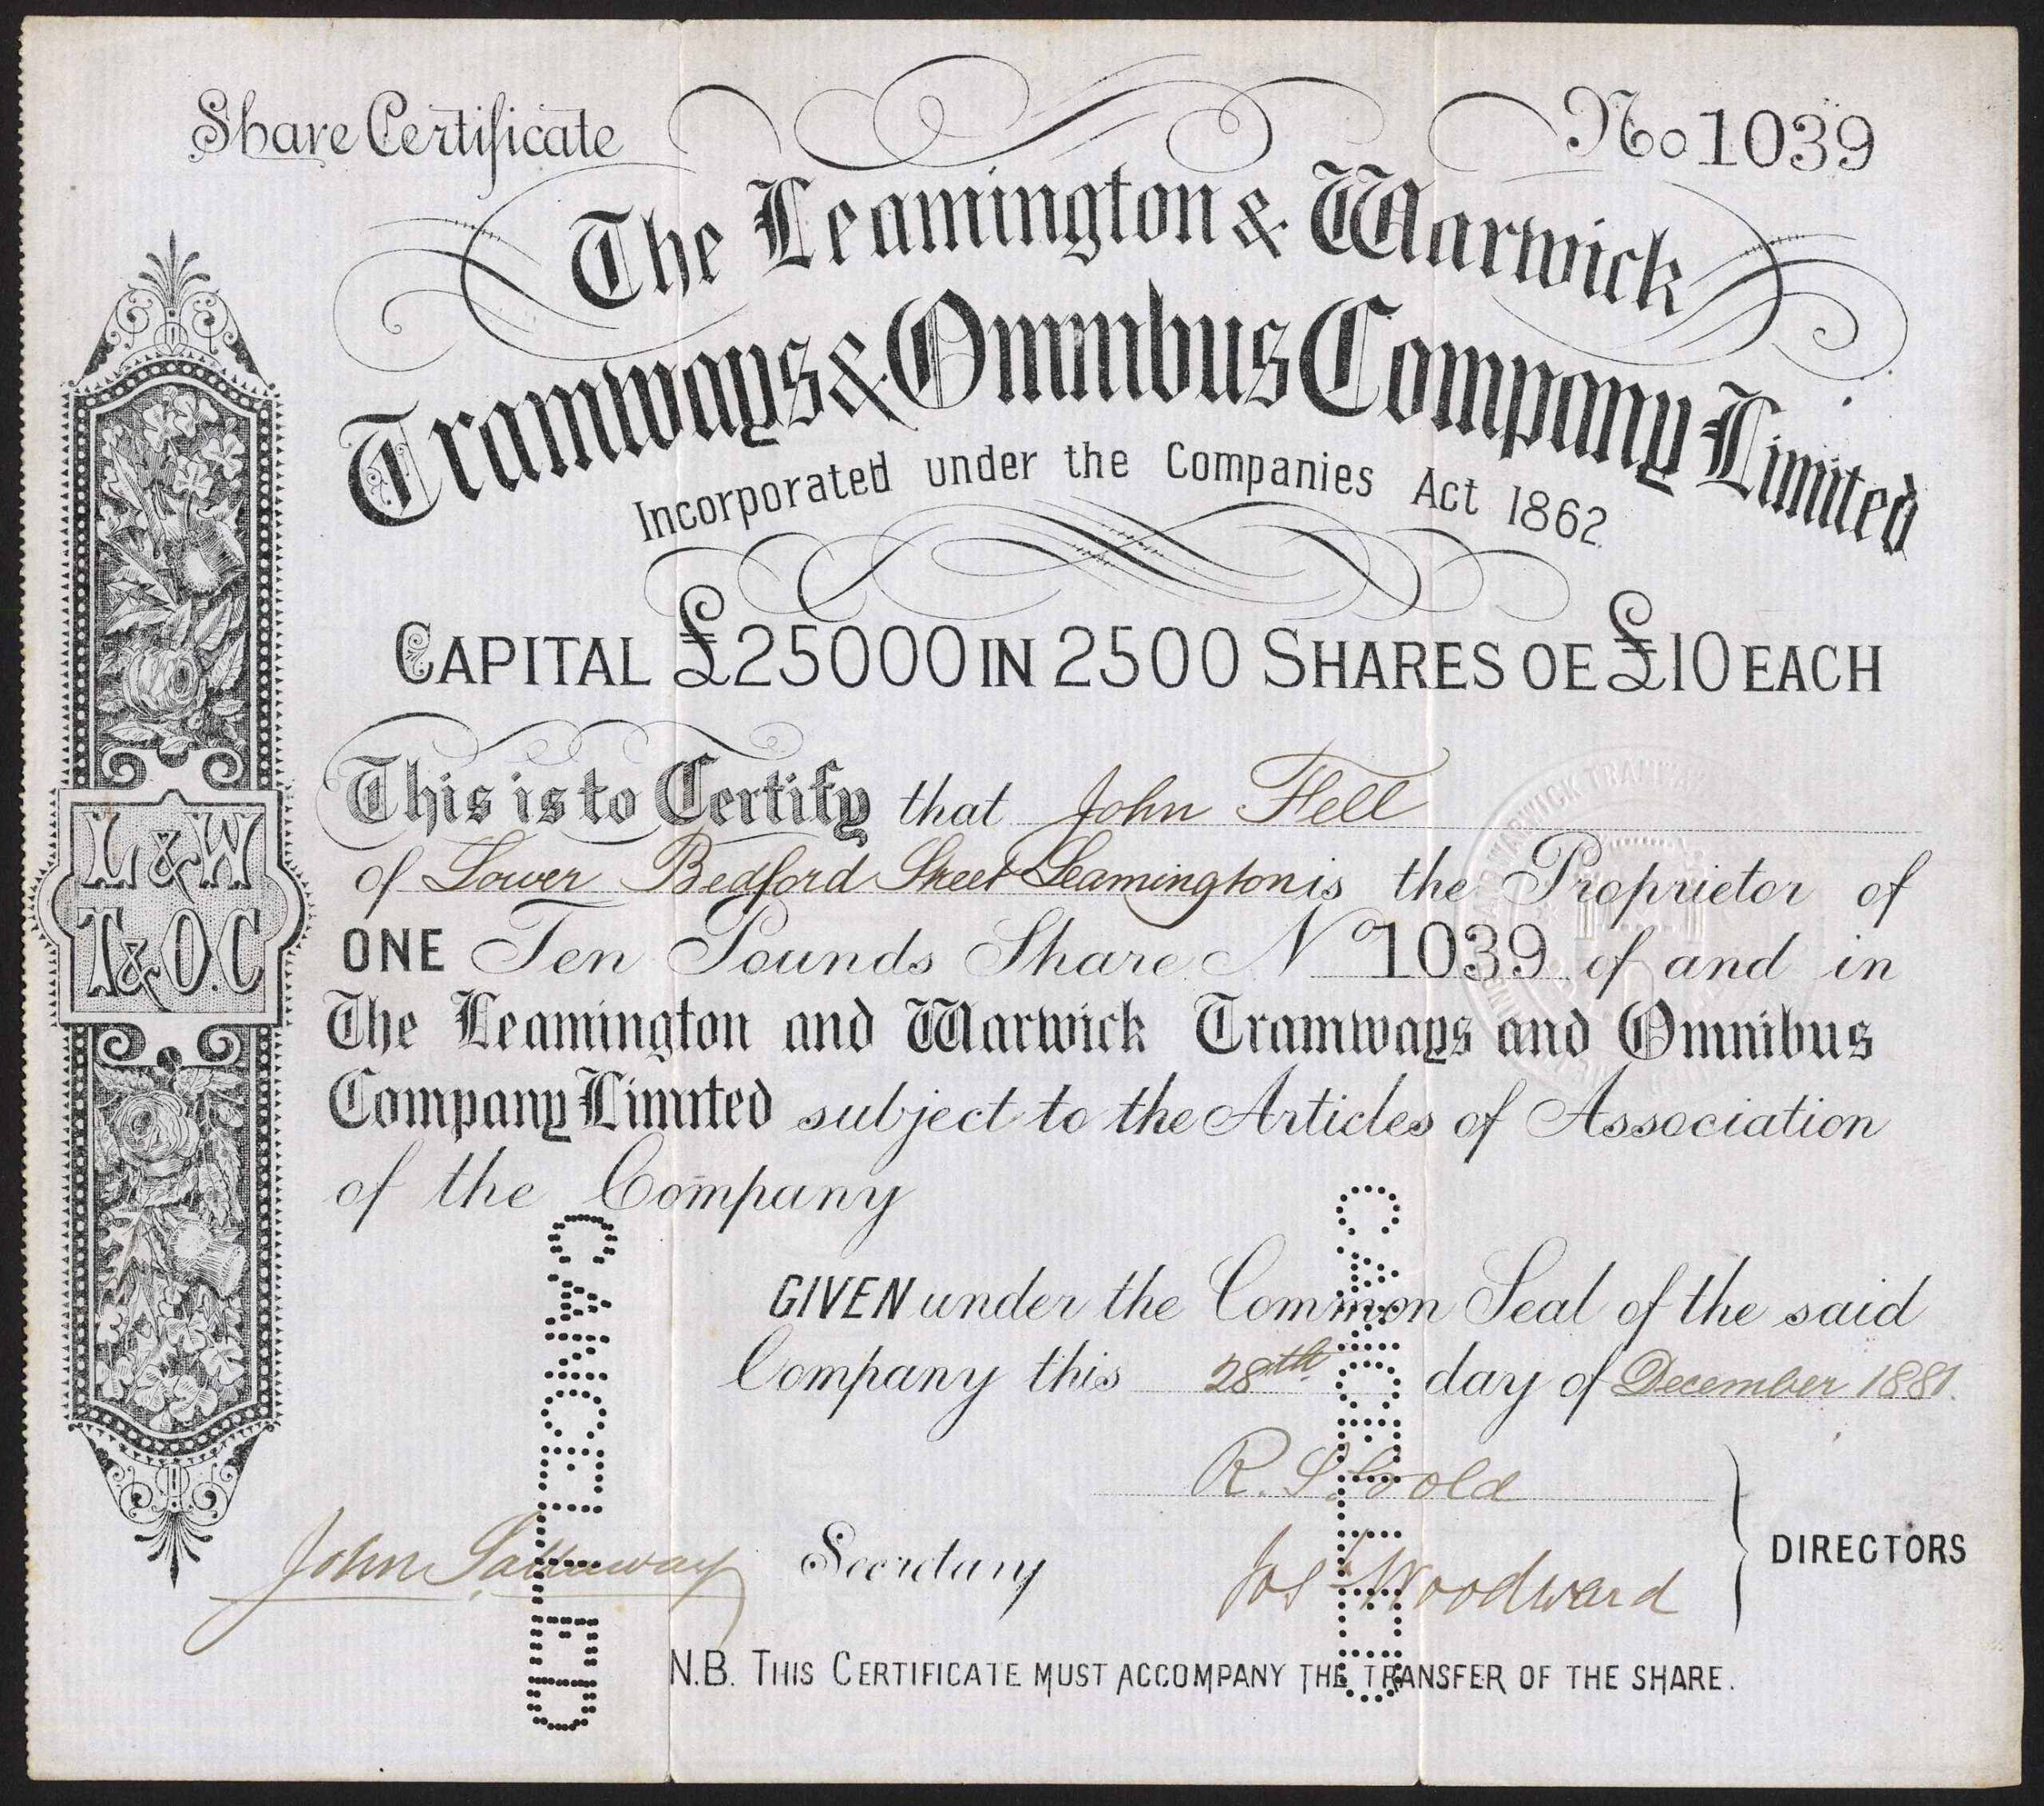 Share Certificate
No 1039
The Leamington & Warwick
Tramways & Omnibus Company Limited
Incorporated under the Companies Act 1862.
CAPITAL £25000 IN 2500 SHARES OE £10 EACH
L & W
T & O. C
This is to Certify that John Fell
of Lower Bedford Street Leamington is the Proprietor of
ONE Ten Pounds Share No 1039 of and in
The Leamington and Warwick Tramways and Omnibus
Company Limited subject to the Articles of Association
of the Company
GIVEN under the Common Seal of the said
Company this 28th day of December 1881.
R. S.
John Secretary
Jos Woodward
DIRECTORS
N.B. THIS CERTIFICATE MUST ACCOMPANY THE TRANSFER OF THE SHARE.
CANCELLED
CANCELLED